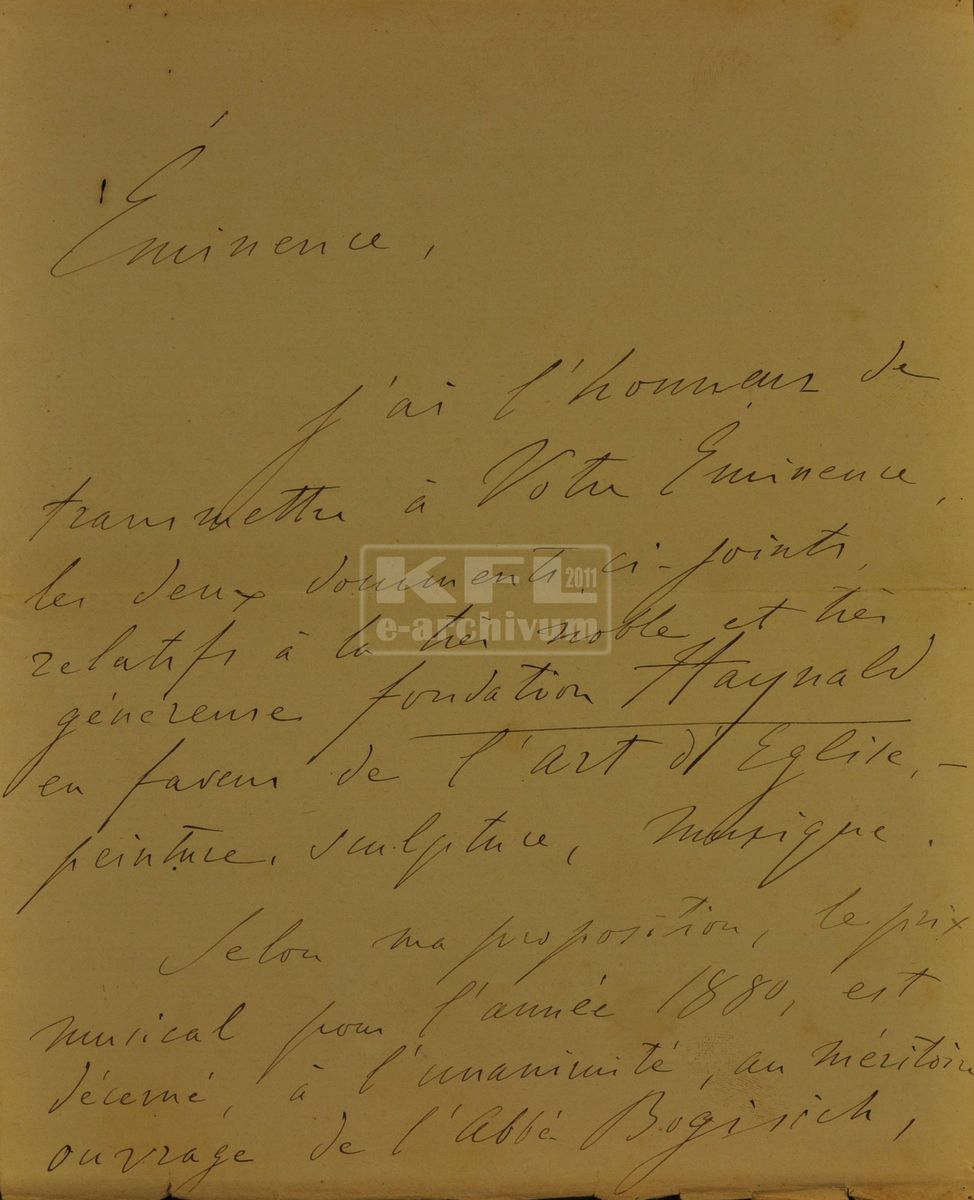 Éminence,
j'ai l'honneur de
transmettre à Votre Éminence,
les deux documents ci-joints,
relatifs à la très noble et très
généreuse fondation Haynald
en faveur de l'art d'Eglise, –
peinture, sculpture, musique.
Selon ma proposition, le prix
musical pour l'année 1880, est
décerné, à l'unanimité, au méritoire
ouvrage de l'Abbé Bogisich,
KFL 2011
e-archivum